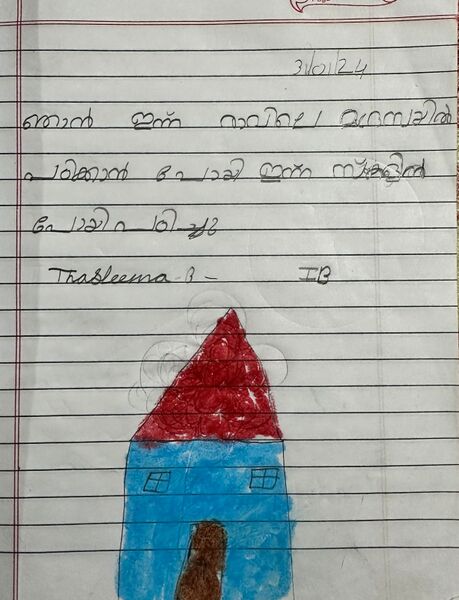 31/01/24
ഞാൻ ഇന്ന് രാവിലെ മദ്രസയിൽ
പഠിക്കാൻ പോയി ഇന്ന് സ്കൂളിൽ
പോയി പഠിച്ചു
Thasleema - B -   IB